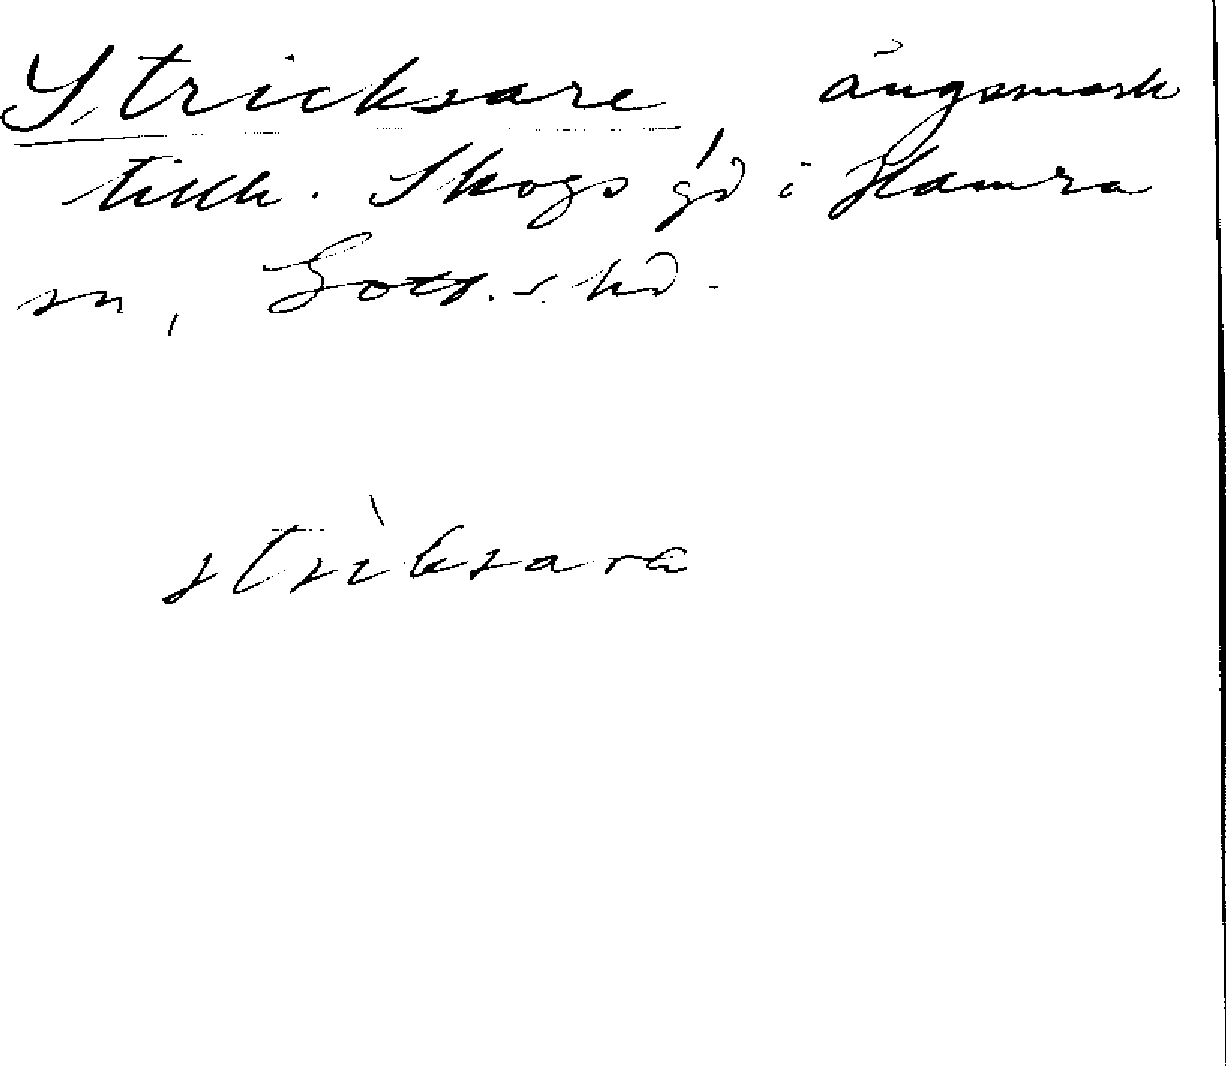 Stricksare, ängsmark
tillh. Skogs gd i Hamra
sn, Gotl. s. hd.
strìksara